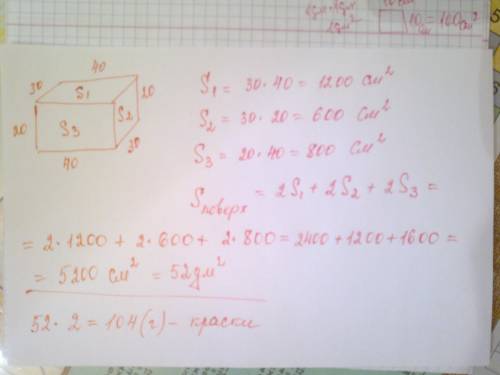 1дм²
10 см = 100 см²
40
30
S₁
20
20
S₃
S₂
40
30
S₁ = 30·40 = 1200 см²
S₂ = 30·20 = 600 см²
S₃ = 20·40 = 800 см²
Sповерх = 2S₁ + 2S₂ + 2S₃ =
= 2·1200 + 2·600 + 2·800 = 2400 + 1200 + 1600 =
= 5200 см² = 52дм²
52·2 = 104(г) – краски